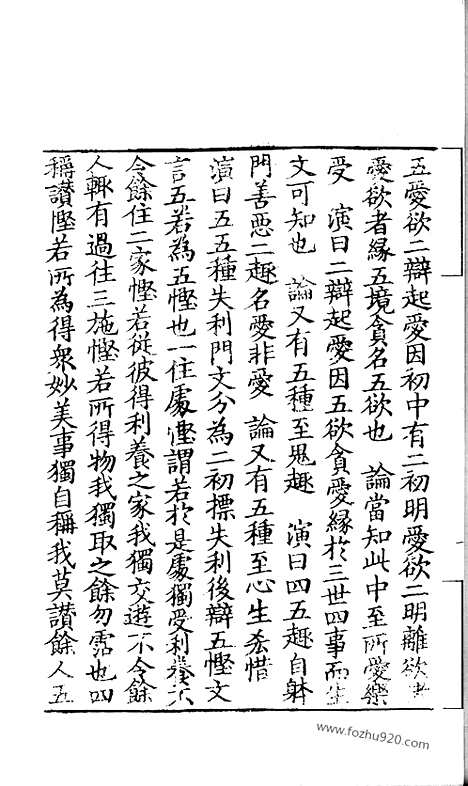 五愛欲二辯起愛因初中有二初明愛欲二明離欲
愛欲者緣五境貪名五欲也　論當知此中至所愛樂
受　演曰二辯起愛因五欲貪愛緣於三世四事而生
文可知也　論又有五種至鬼趣　演曰四五趣自躰
門善惡二趣名愛非愛　論又有五種至心生悋惜
演曰五五種失利門文分為二初標失利後辯五慳文
言五者為五慳也一住處慳謂若於是處獨受利養不
令餘住二家慳若從彼得利養之家我獨交遊不令餘
人輙有過往三施慳若所得物我獨取之餘勿霑也四
稱讚慳若所為得衆妙美事獨自稱我莫讚餘人五
www.fozhu920.com